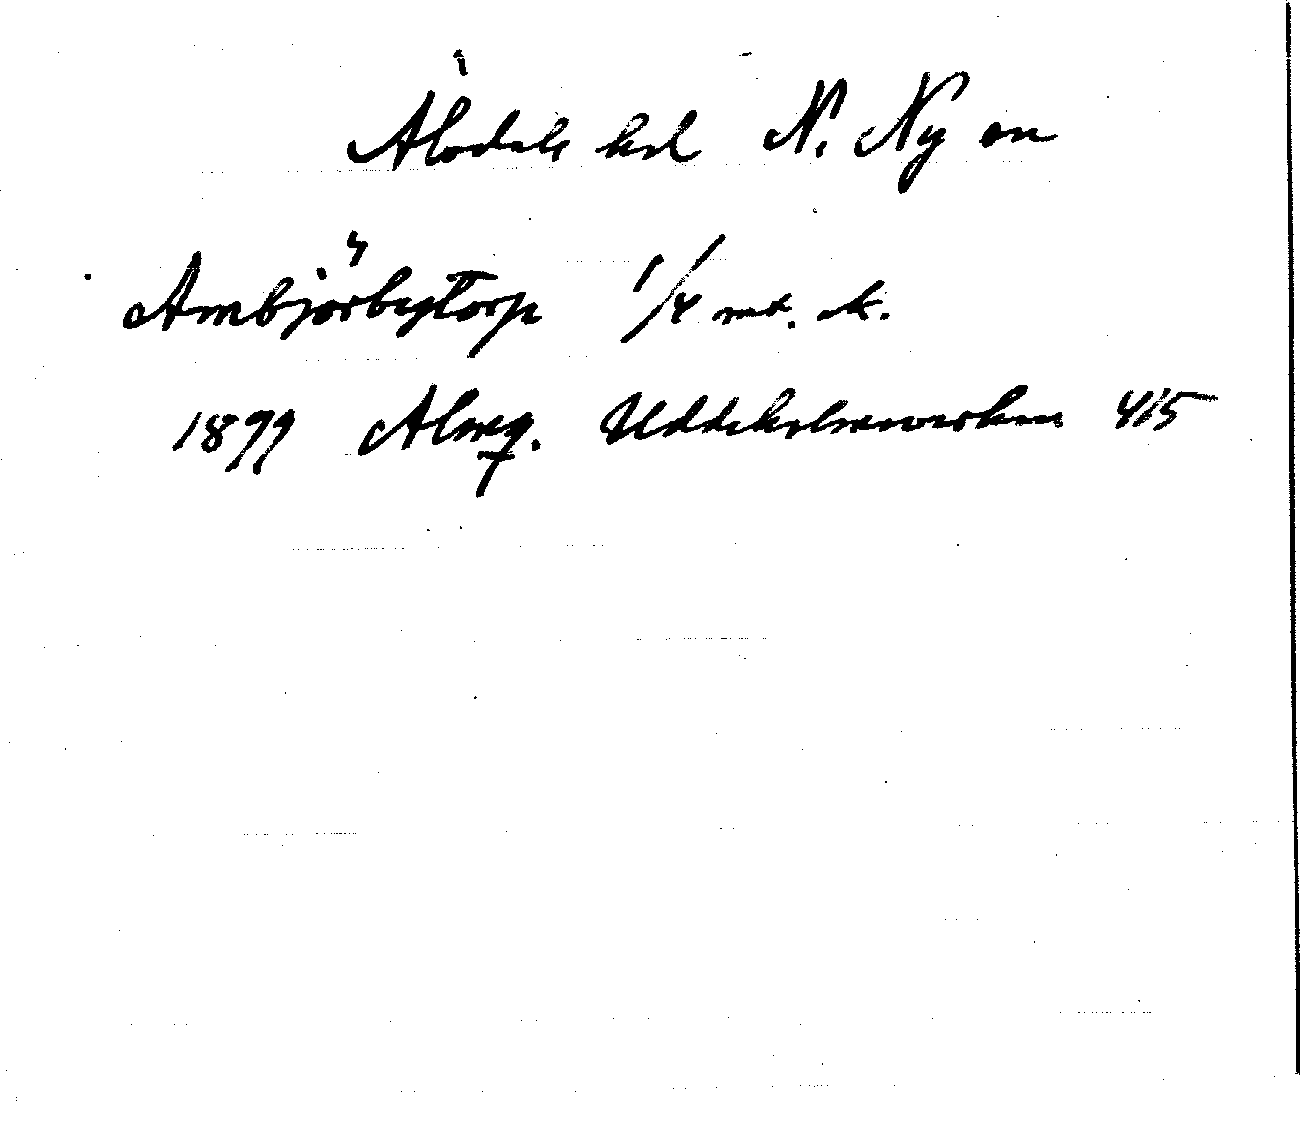 Älvdals hd N. Ny sn
Ambjörbytorp 1/4 mt. sk.
1899 Almqg. Uddeholmsverken 415